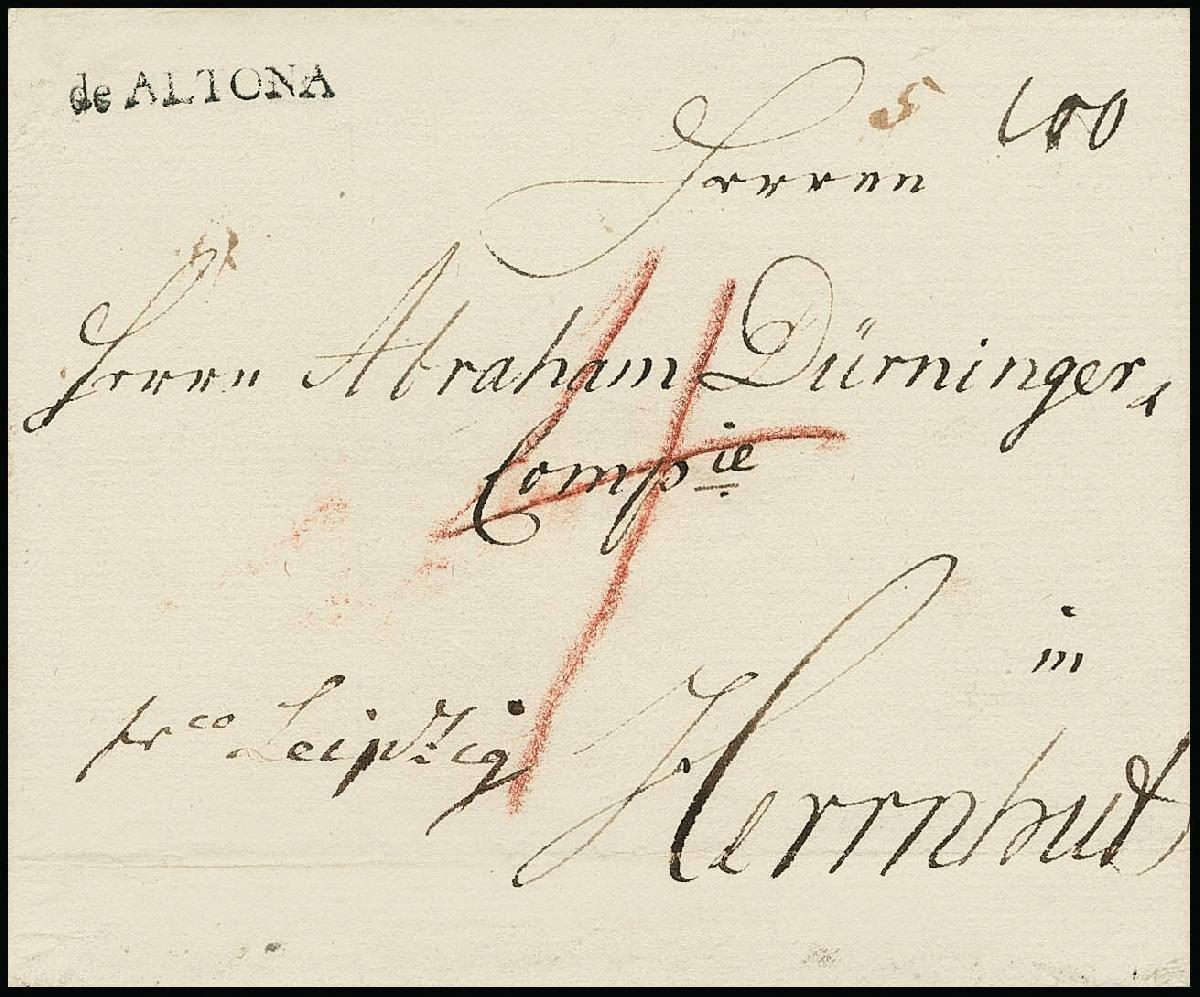 de ALTONA
Herren
5
Herren Abraham Dürninger &
Comp ie
4
in
frco Leipzig
Herrnhut